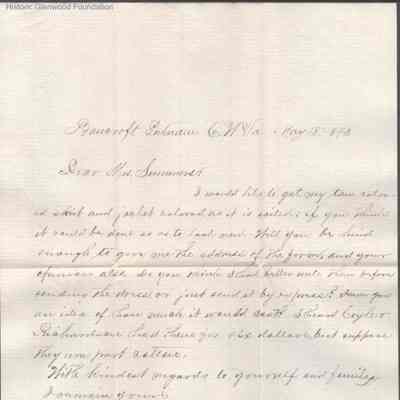 Historic Glenwood Foundation
Bancroft Putnam C. W Va. Nov 13 1893
Dear Mrs. Summers
I would like to get my tan color-
ed skirt and jacket colored as it is soiled; if you think
it could be done so as to look new. Will you be kind
enough to give me the address of the and your
opinion also. Do you think I had better write them before
sending the dress or just send it by express? Have you
an idea of how much it would cost? I had
Richardson had hers for six dollars but suppose
they were part cotton.
With kindest regards to yourself and family
I remain yours